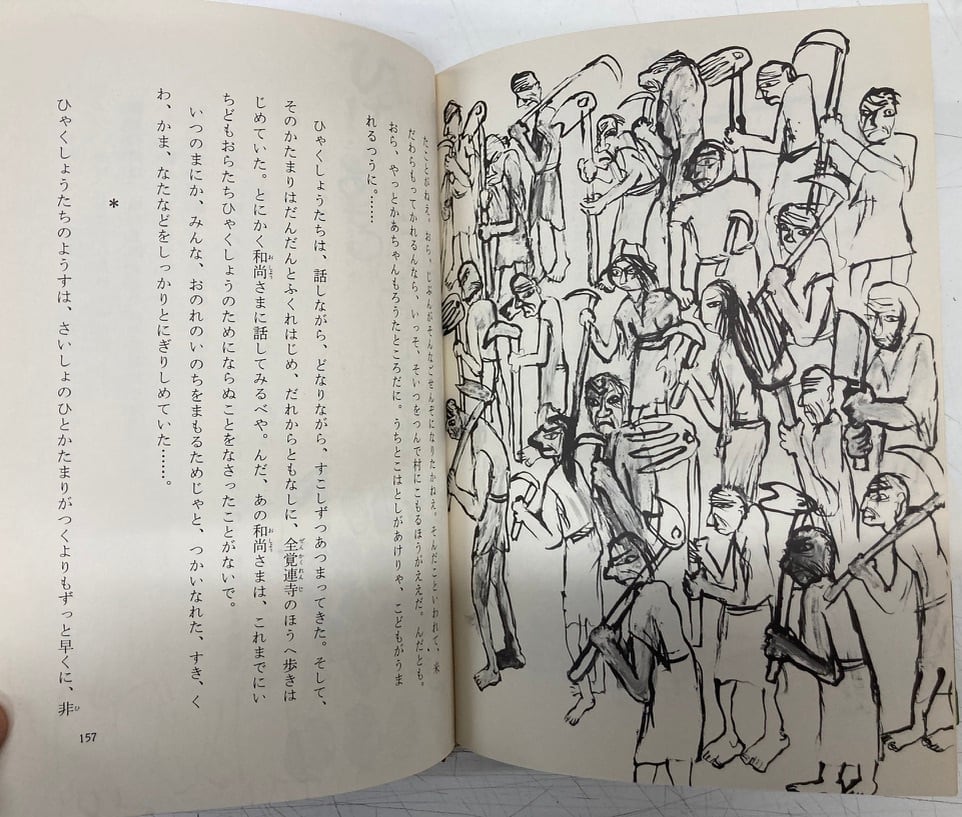 たことがねえ。おら、じぶんがそんなごせんぞになりたかねえ。そんだこといわれて、米
だわらもってかれるんなら、いっそ、そいつをつんで村にこもるほうがええだ。んだとも。
おら、やっとかあちゃんもろうたところだに。うちとこはとしがあけりゃ、こどもがうま
れるつうに。……
ひゃくしょうたちは、話しながら、どなりながら、すこしずつあつまってきた。そして、
そのかたまりはだんだんとふくれはじめ、だれからともなしに、全覚連寺のほうへ歩きは
じめていた。とにかく和尚さまに話してみるべや。んだ、あの和尚さまは、これまでにい
ちどもおらたちひゃくしょうのためにならぬことをなさったことがないで。
いつのまにか、みんな、おのれのいのちをまもるためじゃと、つかいなれた、すき、く
わ、かま、なたなどをしっかりとにぎりしめていた……。
*
ひゃくしょうたちのようすは、さいしょのひとかたまりがつくよりもずっと早くに、非
157